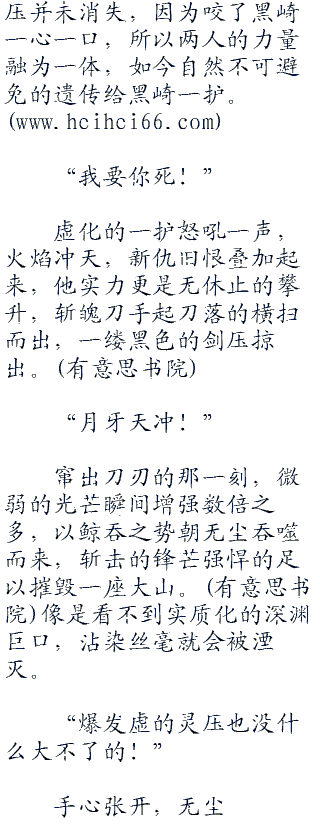 压并未消失，因为咬了黑崎
一心一口，所以两人的力量
融为一体，如今自然不可避
免的遗传给黑崎一护。
(www.hcihci66.com)
“我要你死！”
虚化的一护怒吼一声，
火焰冲天，新仇旧恨叠加起
来，他实力更是无休止的攀
升，斩魄刀手起刀落的横扫
而出，一缕黑色的剑压掠
出。(有意思书院)
“月牙天冲！”
窜出刀刃的那一刻，微
弱的光芒瞬间增强数倍之
多，以鲸吞之势朝无尘吞噬
而来，斩击的锋芒强悍的足
以摧毁一座大山。(有意思书
院)像是看不到实质化的深渊
巨口，沾染丝毫就会被湮
灭。
“爆发虚的灵压也没什
么大不了的！”
手心张开，无尘